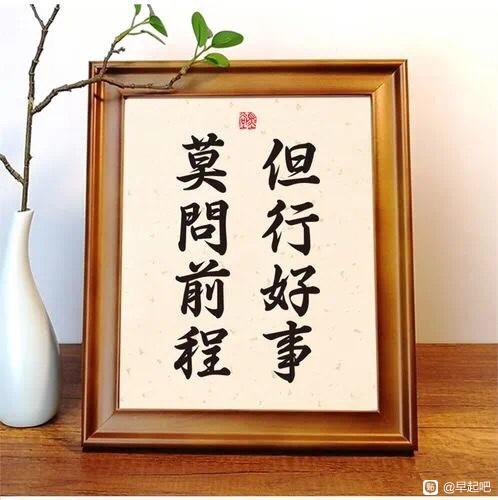 但行好事
莫問前程
@早起吧